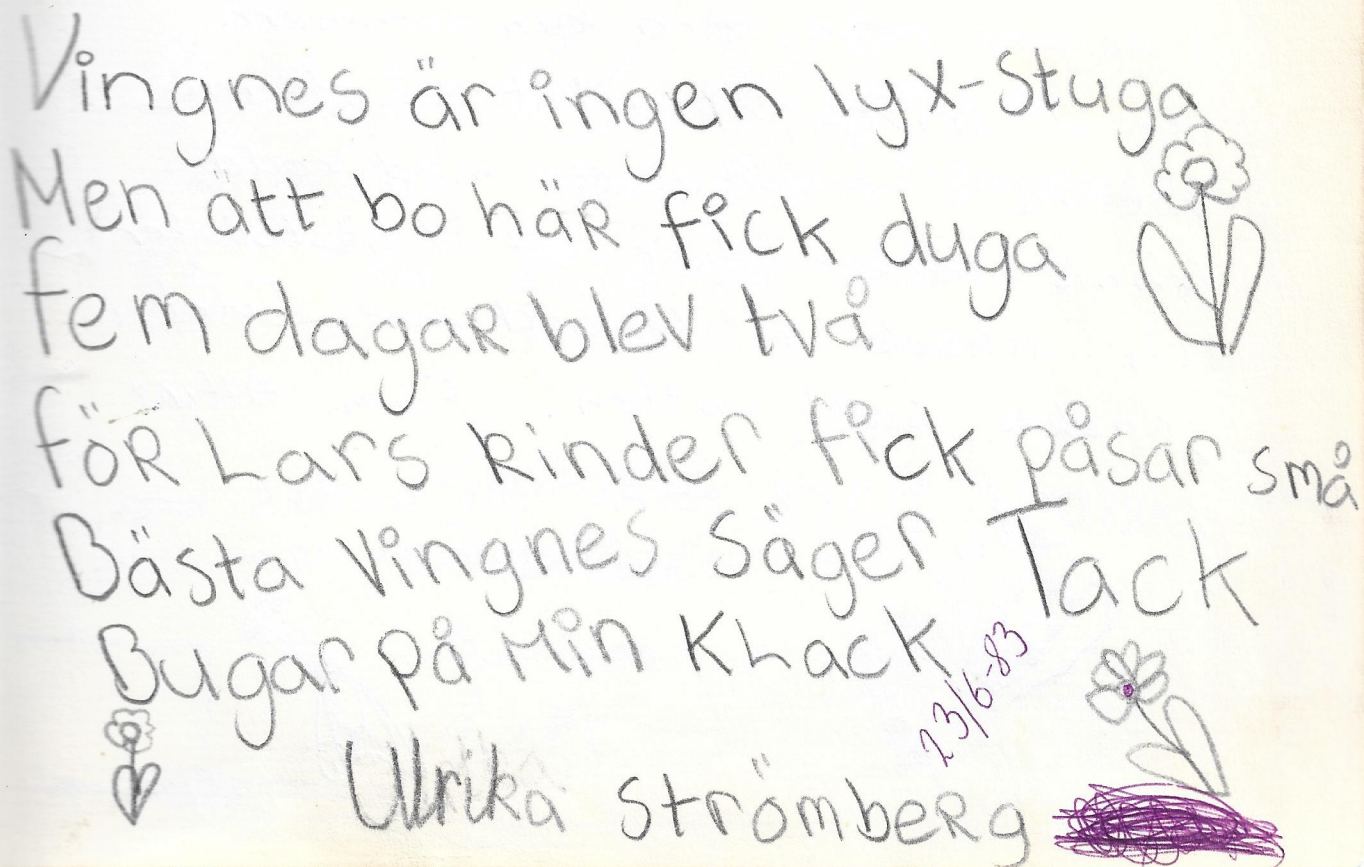 Vingnes är ingen lyx-Stuga
Men ätt bo häR fick duga
fem dagaR blev två
föR Lars kinder fick påsar små
Bästa Vingnes Säger Tack
Bugar på Min KLack
23/6-83
Ulrika StrömbeRg